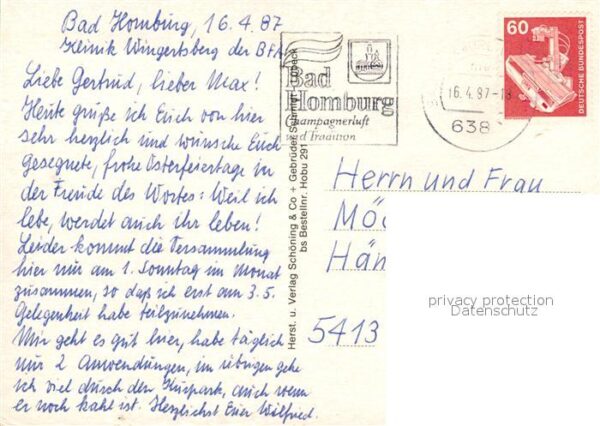 Bad Homburg, 16.4.87
Klinik Wingertsberg der BFA
Liebe Gertrud, lieber Max!
Heute grüße ich Euch von hier
sehr herzlich und wünsche Euch
gesegnete, frohe Osterfeiertage in
der Freude des Wortes: Weil ich
lebe, werdet auch ihr leben!
Leider kommt die Versammlung
hier nur am 1. Sonntag im Monat
zusammen, so daß ich erst am 3.5.
Gelegenheit habe teilzunehmen.
Mir geht es gut hier, habe täglich
nur 2 Anwendungen, im übrigen gehe
ich viel durch den Kurpark, auch wenn
er noch kahl ist. Herzlichst Euer Wilfried.
Herst. u. Verlag Schöning & Co + Gebrüder Schmidt, Lübeck
bs Bestellnr. Hobu 291
Bad
Homburg
Champagnerluft
und Tradition
16.4.87-18
638
60
DEUTSCHE BUNDESPOST
Herrn und Frau
Möc
Hän
5413
privacy protection
Datenschutz